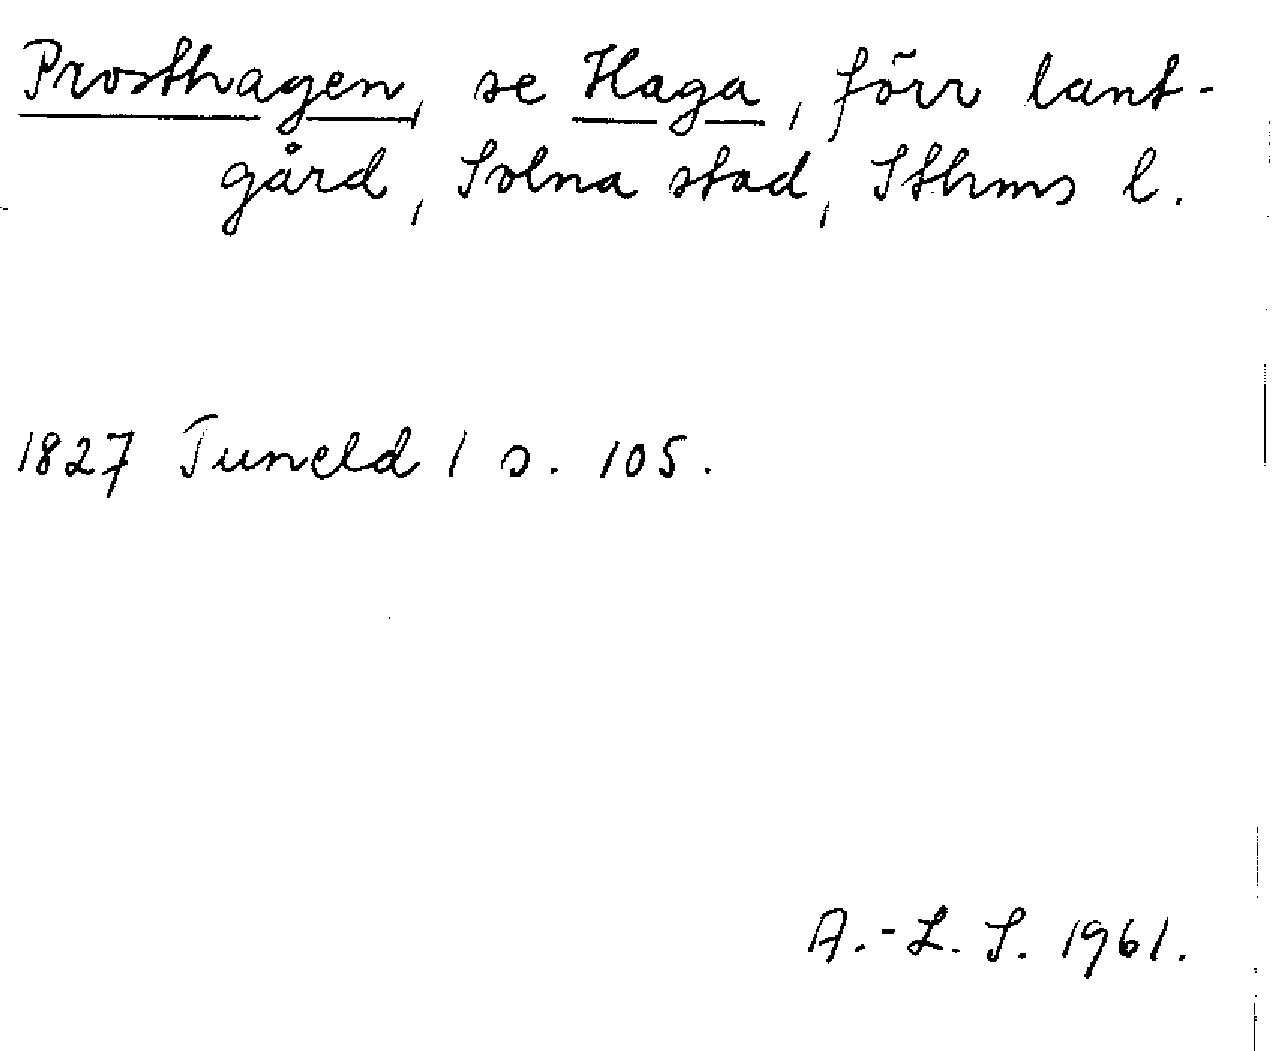 Prosthagen, se Haga, förr lant-
gård, Solna stad, Sthms l.
1827 Tuneld 1 s. 105.
A.-L. S. 1961.